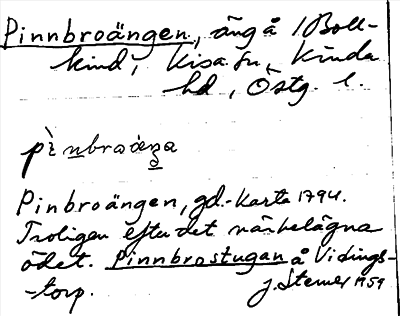 Pinnbroängen, äng å Boll-
kind, Kisa sn, Kinda
hd, Östg. l.
pìnbroäŋa
Pinbroängen, gd.-karta 1794.
Troligen efter det närbelägna
ödet. Pinnbrostugan å Vidings-
-torp.
J. Sterner 1959